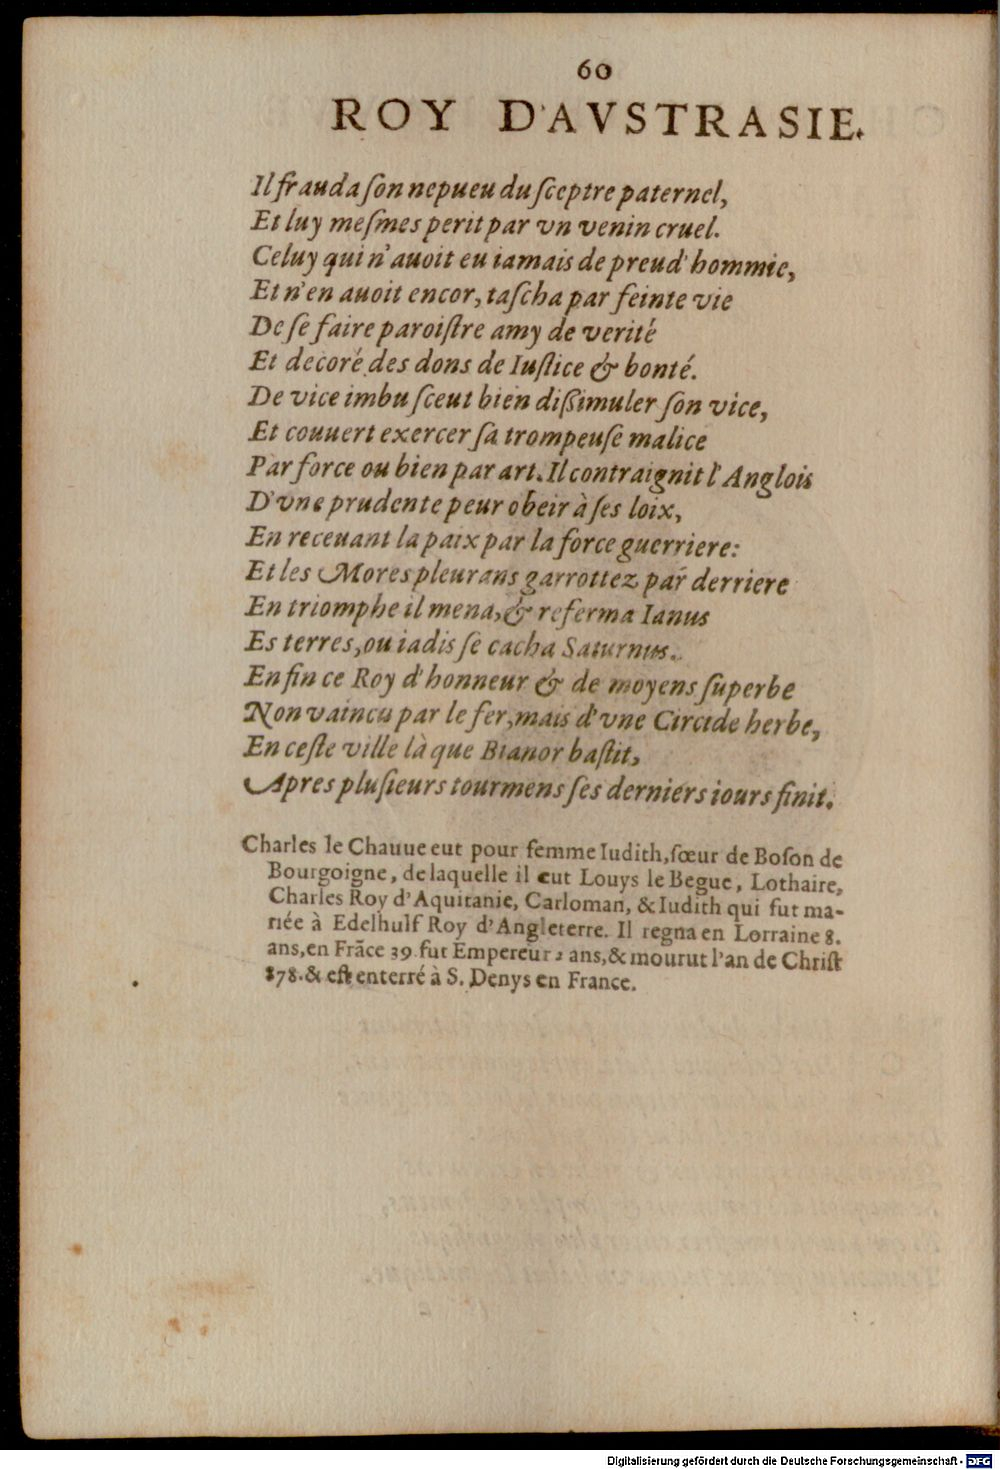 60
ROY D'AVSTRASIE.
Il frauda son nepueu du sceptre paternel,
Et luy mesmes perit par vn venin cruel.
Celuy qui n'auoit eu iamais de preud'hommie,
Et n'en auoit encor, tascha par feinte vie
De se faire paroistre amy de verité
Et decoré des dons de Iustice & bonté.
De vice imbu sceut bien dißimuler son vice,
Et couuert exercer sa trompeuse malice
Par force ou bien par art. Il contraignit l'Anglois
D'vne prudente peur obeir à ses loix,
En receuant la paix par la force guerriere:
Et les Mores pleurans garrottez par derriere
En triomphe il mena, & referma Ianus
Es terres, ou iadis se cacha Saturnus.
En fin ce Roy d'honneur & de moyens superbe
Non vaincu par le fer, mais d'vne Circide herbe,
En ceste ville là que Bianor bastit,
Apres plusieurs tourmens ses derniers iours finit.
Charles le Chauue eut pour femme Iudith, sœur de Boson de
Bourgoigne, de laquelle il eut Louys le Begue, Lothaire,
Charles Roy d'Aquitanie, Carloman, & Iudith qui fut ma-
riée à Edelhulf Roy d'Angleterre. Il regna en Lorraine 8.
ans, en Frãce 39. fut Empereur 2 ans, & mourut l'an de Christ
878. & est enterré à S. Denys en France.
Digitalisierung gefördert durch die Deutsche Forschungsgemeinschaft - DFG